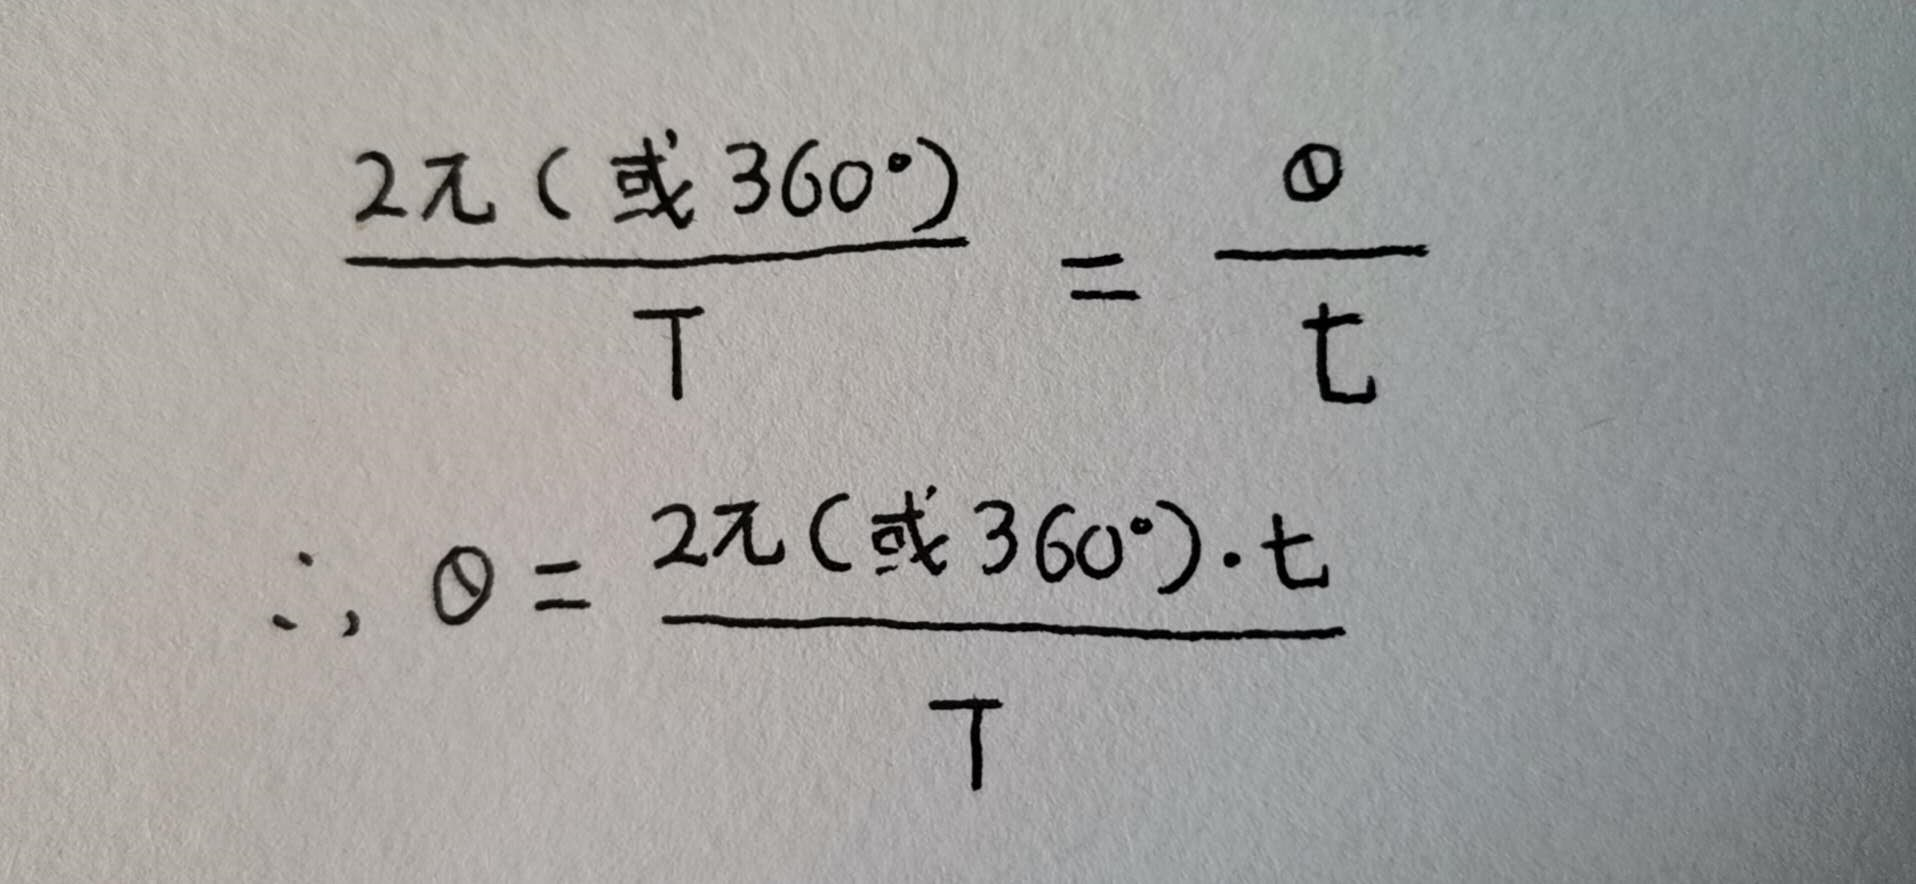 2π(或360°)/T = θ/t
∴, θ = 2π(或360°)·t/T